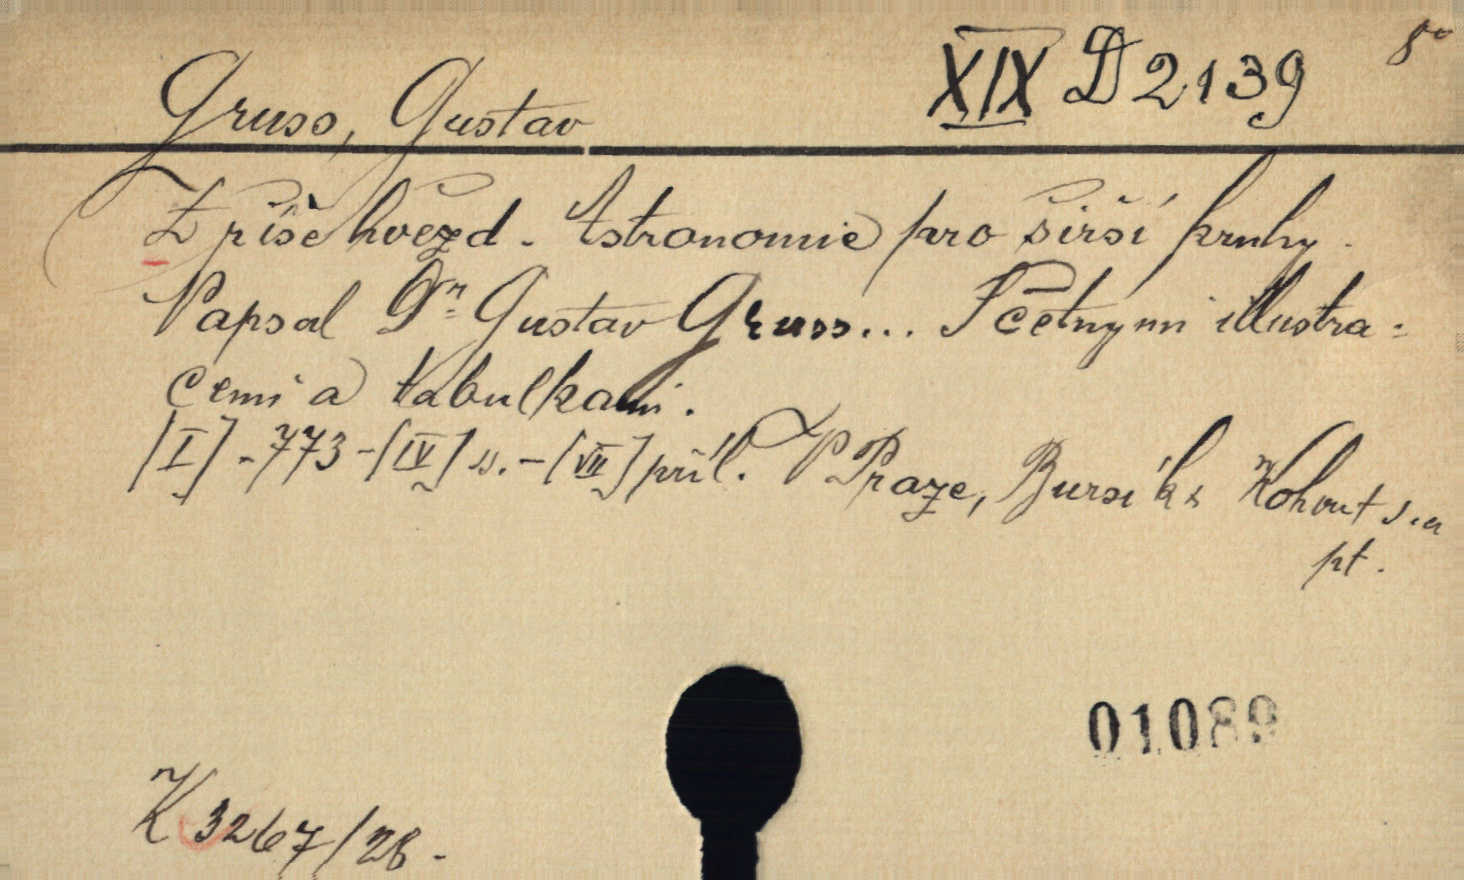 XIX D 2139 8°
Gruss, Gustav
Z říše hvězd. Astronomie pro širší kruhy.
Napsal Dr. Gustav Gruss... S četnými illustra-
cemi a tabulkami.
[I]-773-[IV] s.-[VII] příl. V Praze, Bursík & Kohout s.a
pt.
01089
K 3267/28.